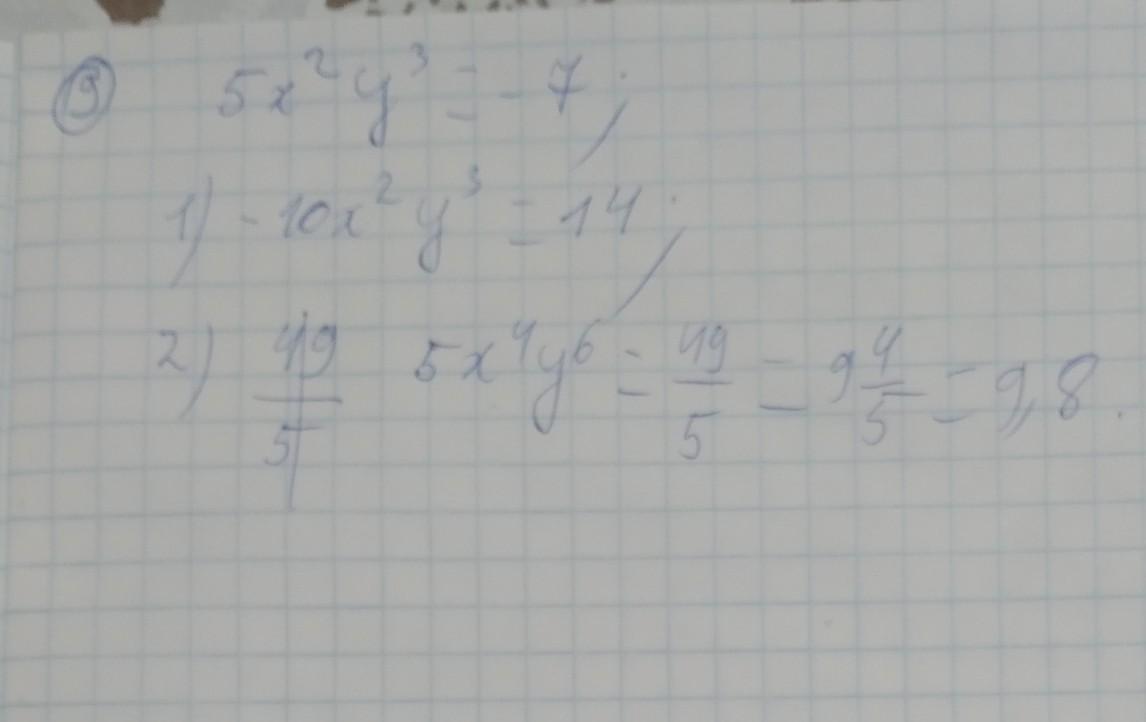 ③ 5x² y³ = -7;
1) -10x² y³ = 14;
2) 49/5 5x⁴y⁶ = 49/5 = 9 4/5 = 9,8.